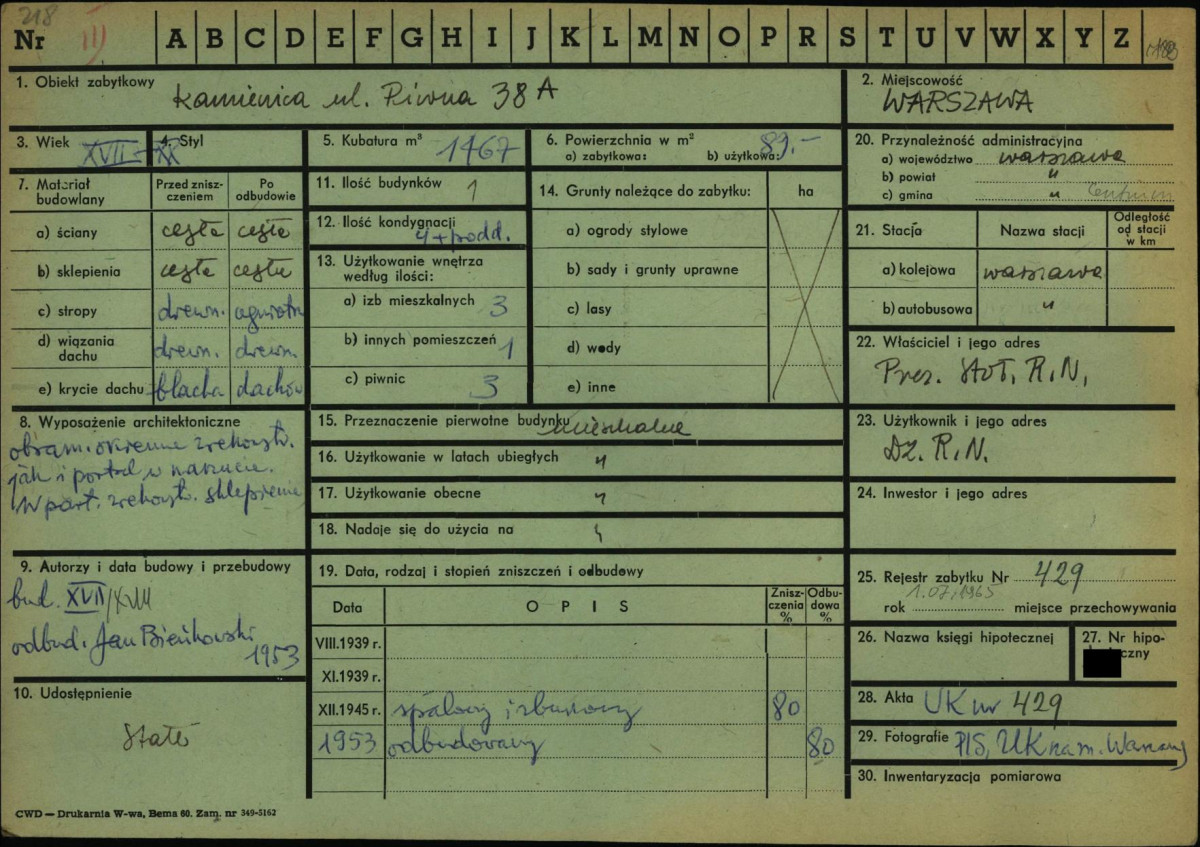 218
Nr III A B C D E F G H I J K L M N O P R S T U V W X Y Z
1. Obiekt zabytkowy Kamienica ul. Piwna 38A
2. Miejscowość
WARSZAWA
3. Wiek XVII – XX
4. Styl
5. Kubatura m³ 1467
6. Powierzchnia w m² 89.-
a) zabytkowa: b) użytkowa:
7. Materiał budowlany
Przed zniszczeniem
Po odbudowie
a) ściany cegła cegła
b) sklepienia cegła cegła
c) stropy drewn. ogniotr
d) wiązania dachu drewn. drewn.
e) krycie dachu blacha dachów
8. Wyposażenie architektoniczne
obram. okienne zrekonstr.
jak i portal w
W part. zrekonstr. sklepienie
9. Autorzy i data budowy i przebudowy
bud. XVII/XVIII
odbud. Jan Bieńkowski
1953
10. Udostępnienie
Stałe
11. Ilość budynków 1
12. Ilość kondygnacji
4 + podd.
13. Użytkowanie wnętrza
według ilości:
a) izb mieszkalnych 3
b) innych pomieszczeń 1
c) piwnic 3
14. Grunty należące do zabytku: ha
a) ogrody stylowe
b) sady i grunty uprawne
c) lasy
d) wody
e) inne
15. Przeznaczenie pierwotne budynku mieszkalne
16. Użytkowanie w latach ubiegłych "
17. Użytkowanie obecne "
18. Nadaje się do użycia na "
19. Data, rodzaj i stopień zniszczeń i odbudowy
Data OPIS Zniszczenia % Odbudowa %
VIII.1939 r.
XI.1939 r.
XII.1945 r. spalony i zburzony 80
1953 odbudowany 80
20. Przynależność administracyjna
a) województwo warszawa
b) powiat "
c) gmina " Centrum
21. Stacja Nazwa stacji Odległość od stacji w km
a) kolejowa warszawa
b) autobusowa "
22. Właściciel i jego adres
Prez. Stoł. R.N.
23. Użytkownik i jego adres
Dz. R.N.
24. Inwestor i jego adres
25. Rejestr zabytku Nr 429
1.07.1965
rok miejsce przechowywania
26. Nazwa księgi hipotecznej
27. Nr hipo-
czny
28. Akta UK nr 429
29. Fotografie PIS, UK nam. Warszawy
30. Inwentaryzacja pomiarowa
CWD — Drukarnia W-wa, Bema 60. Zam. nr 349-5162